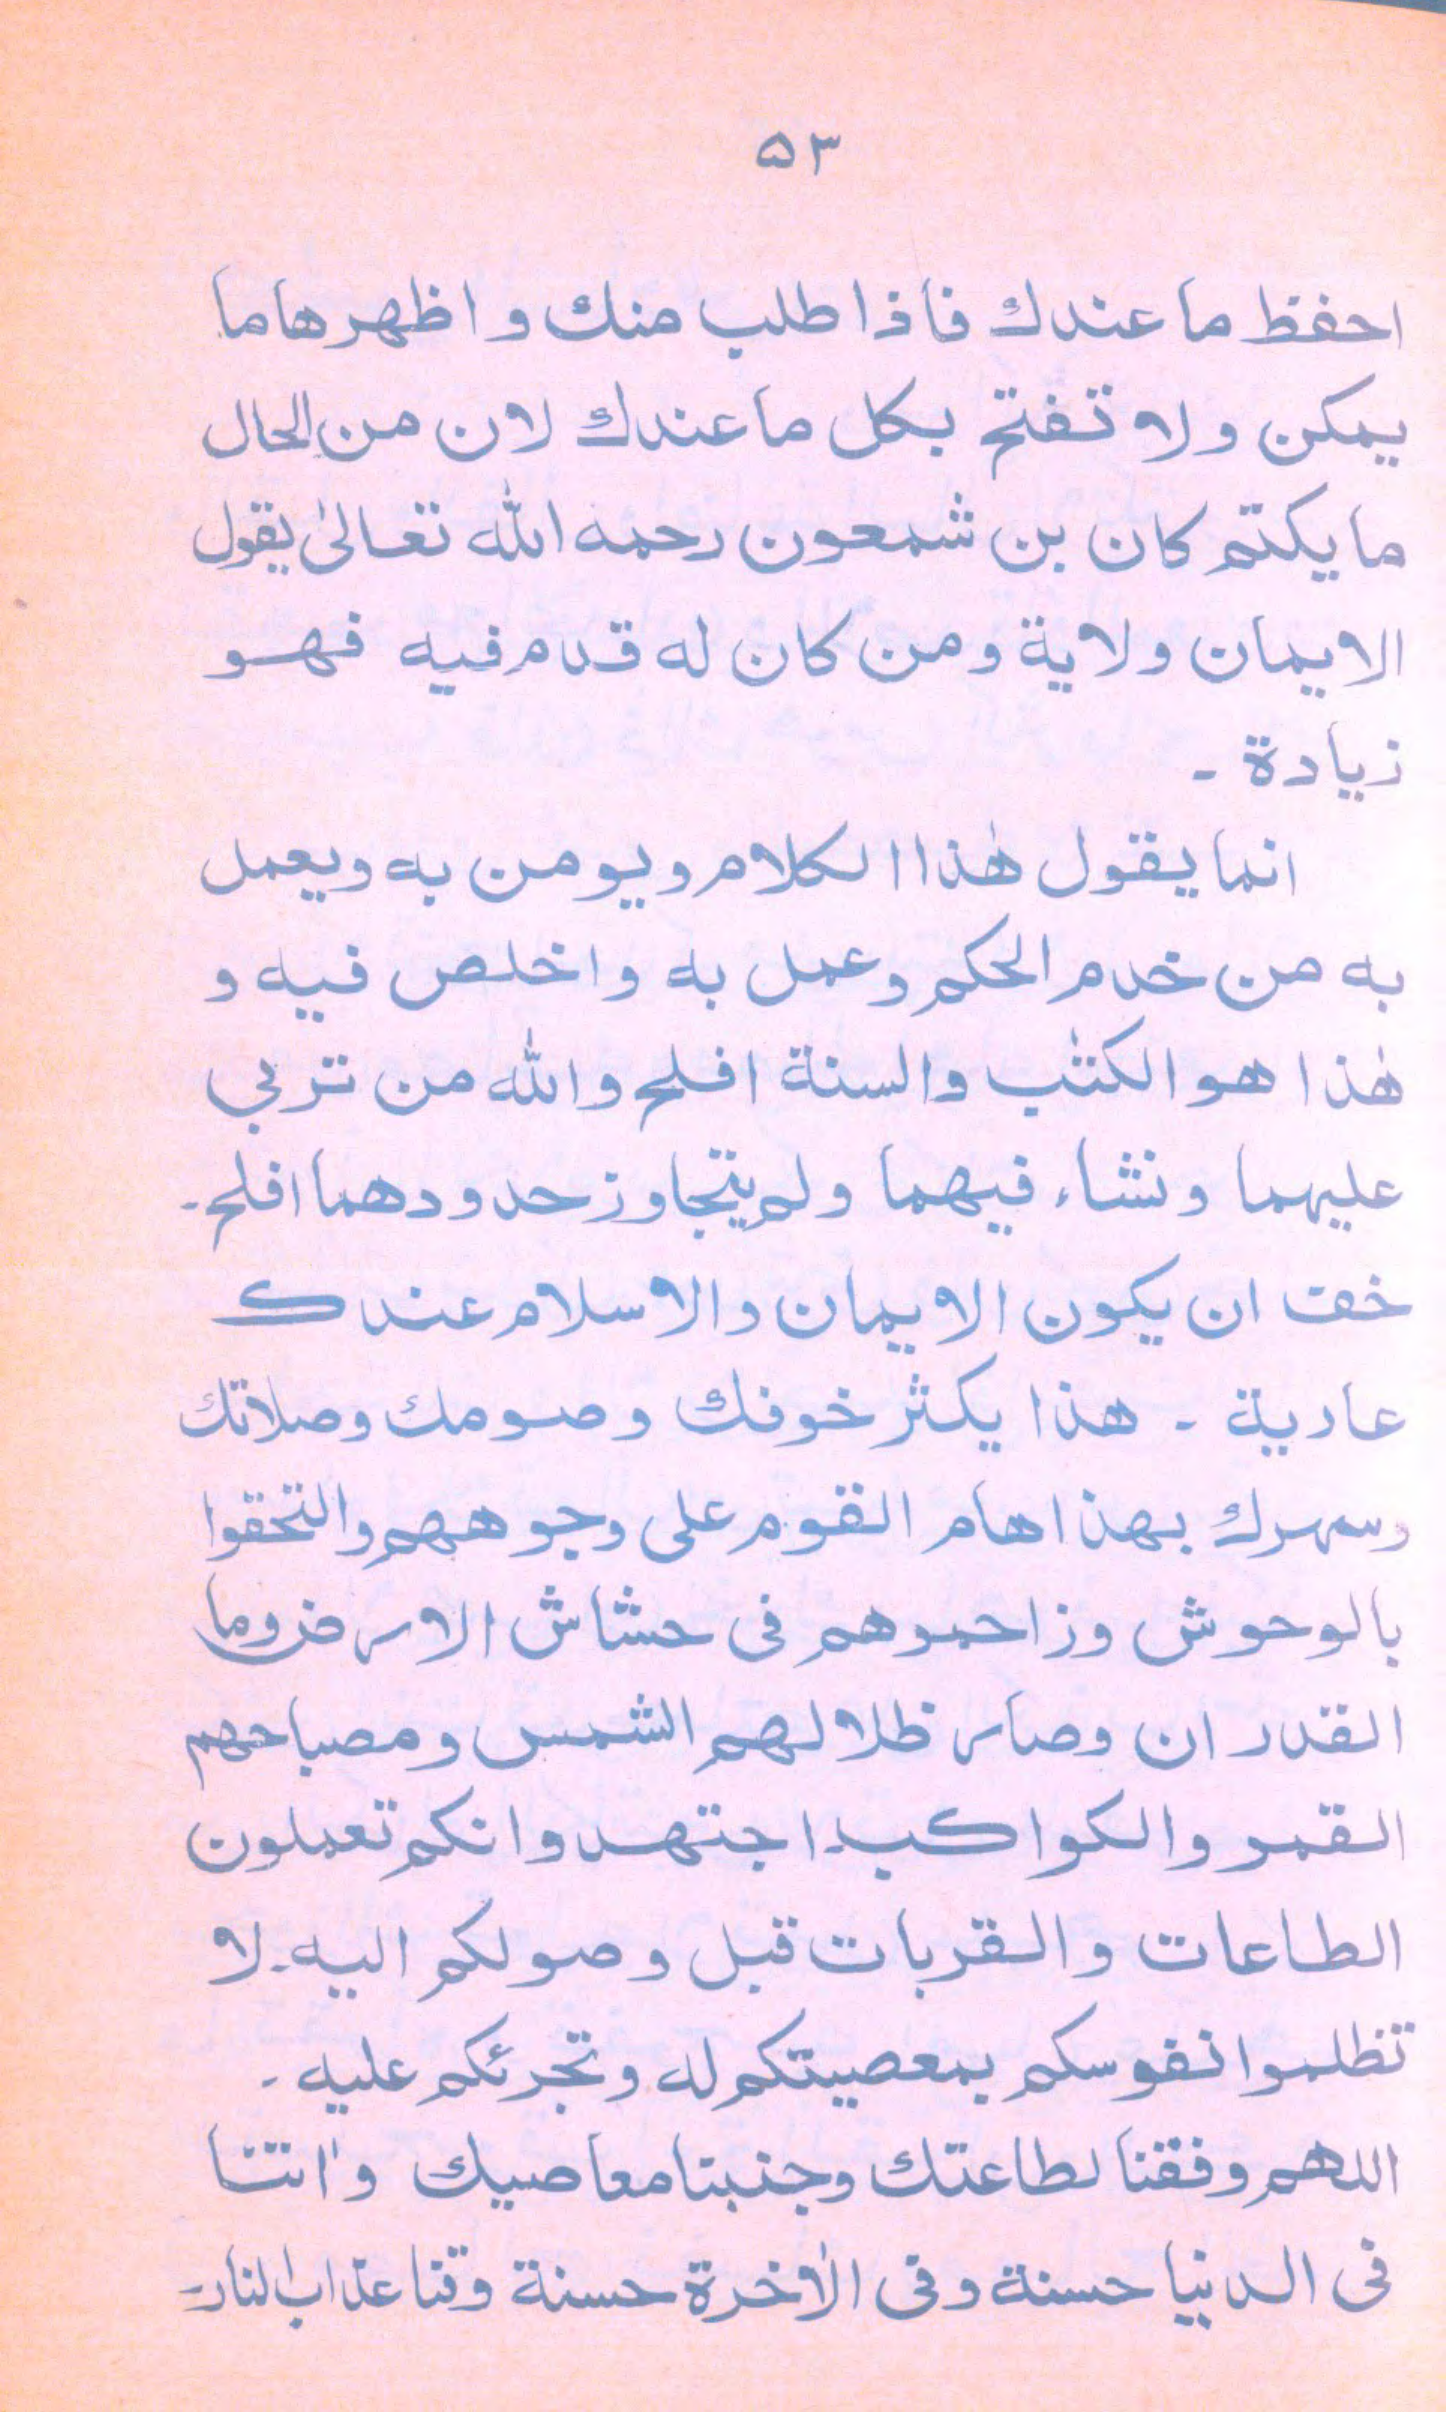 ۵۳
احفظ ما عندك فاذا طلب منك و اظهرها ما
يمكن ولا تفتح بكل ما عندك لان من الحال
ما يكتم كان بن شمعون رحمه الله تعالىٰ يقول
الايمان ولاية ومن كان له قدم فيه فهو
زيادة ـ
انما يقول هٰذا الكلام ويومن به ويعمل
به من خدم الحكم وعمل به واخلص فيه و
هٰذا هو الكتٰب والسنة افلح والله من تربي
عليهما ونشاء فيهما ولم يتجاوز حدودهما افلح ـ
خف ان يكون الايمان والاسلام عندك
عارية ـ هذا يكثر خوفك وصومك وصلاتك
وسهرك بهذا هام القوم على وجوههم والتحقوا
بالوحوش وزاحموهم فى حشاش الارض وما
القدران وصار ظلالهم الشمس ومصباحهم
القمر والكواكب اجتهدوا نكم تعملون
الطاعات والقربات قبل وصولكم اليه ـ لا
تظلموا نفوسكم بمعصيتكم له وتجرئكم عليه ـ
اللهم وفقنا لطاعتك وجنبنا معاصيك واٰتنا
فى الدنيا حسنة وفى الاٰخرة حسنة وقنا عذاب النار ـ